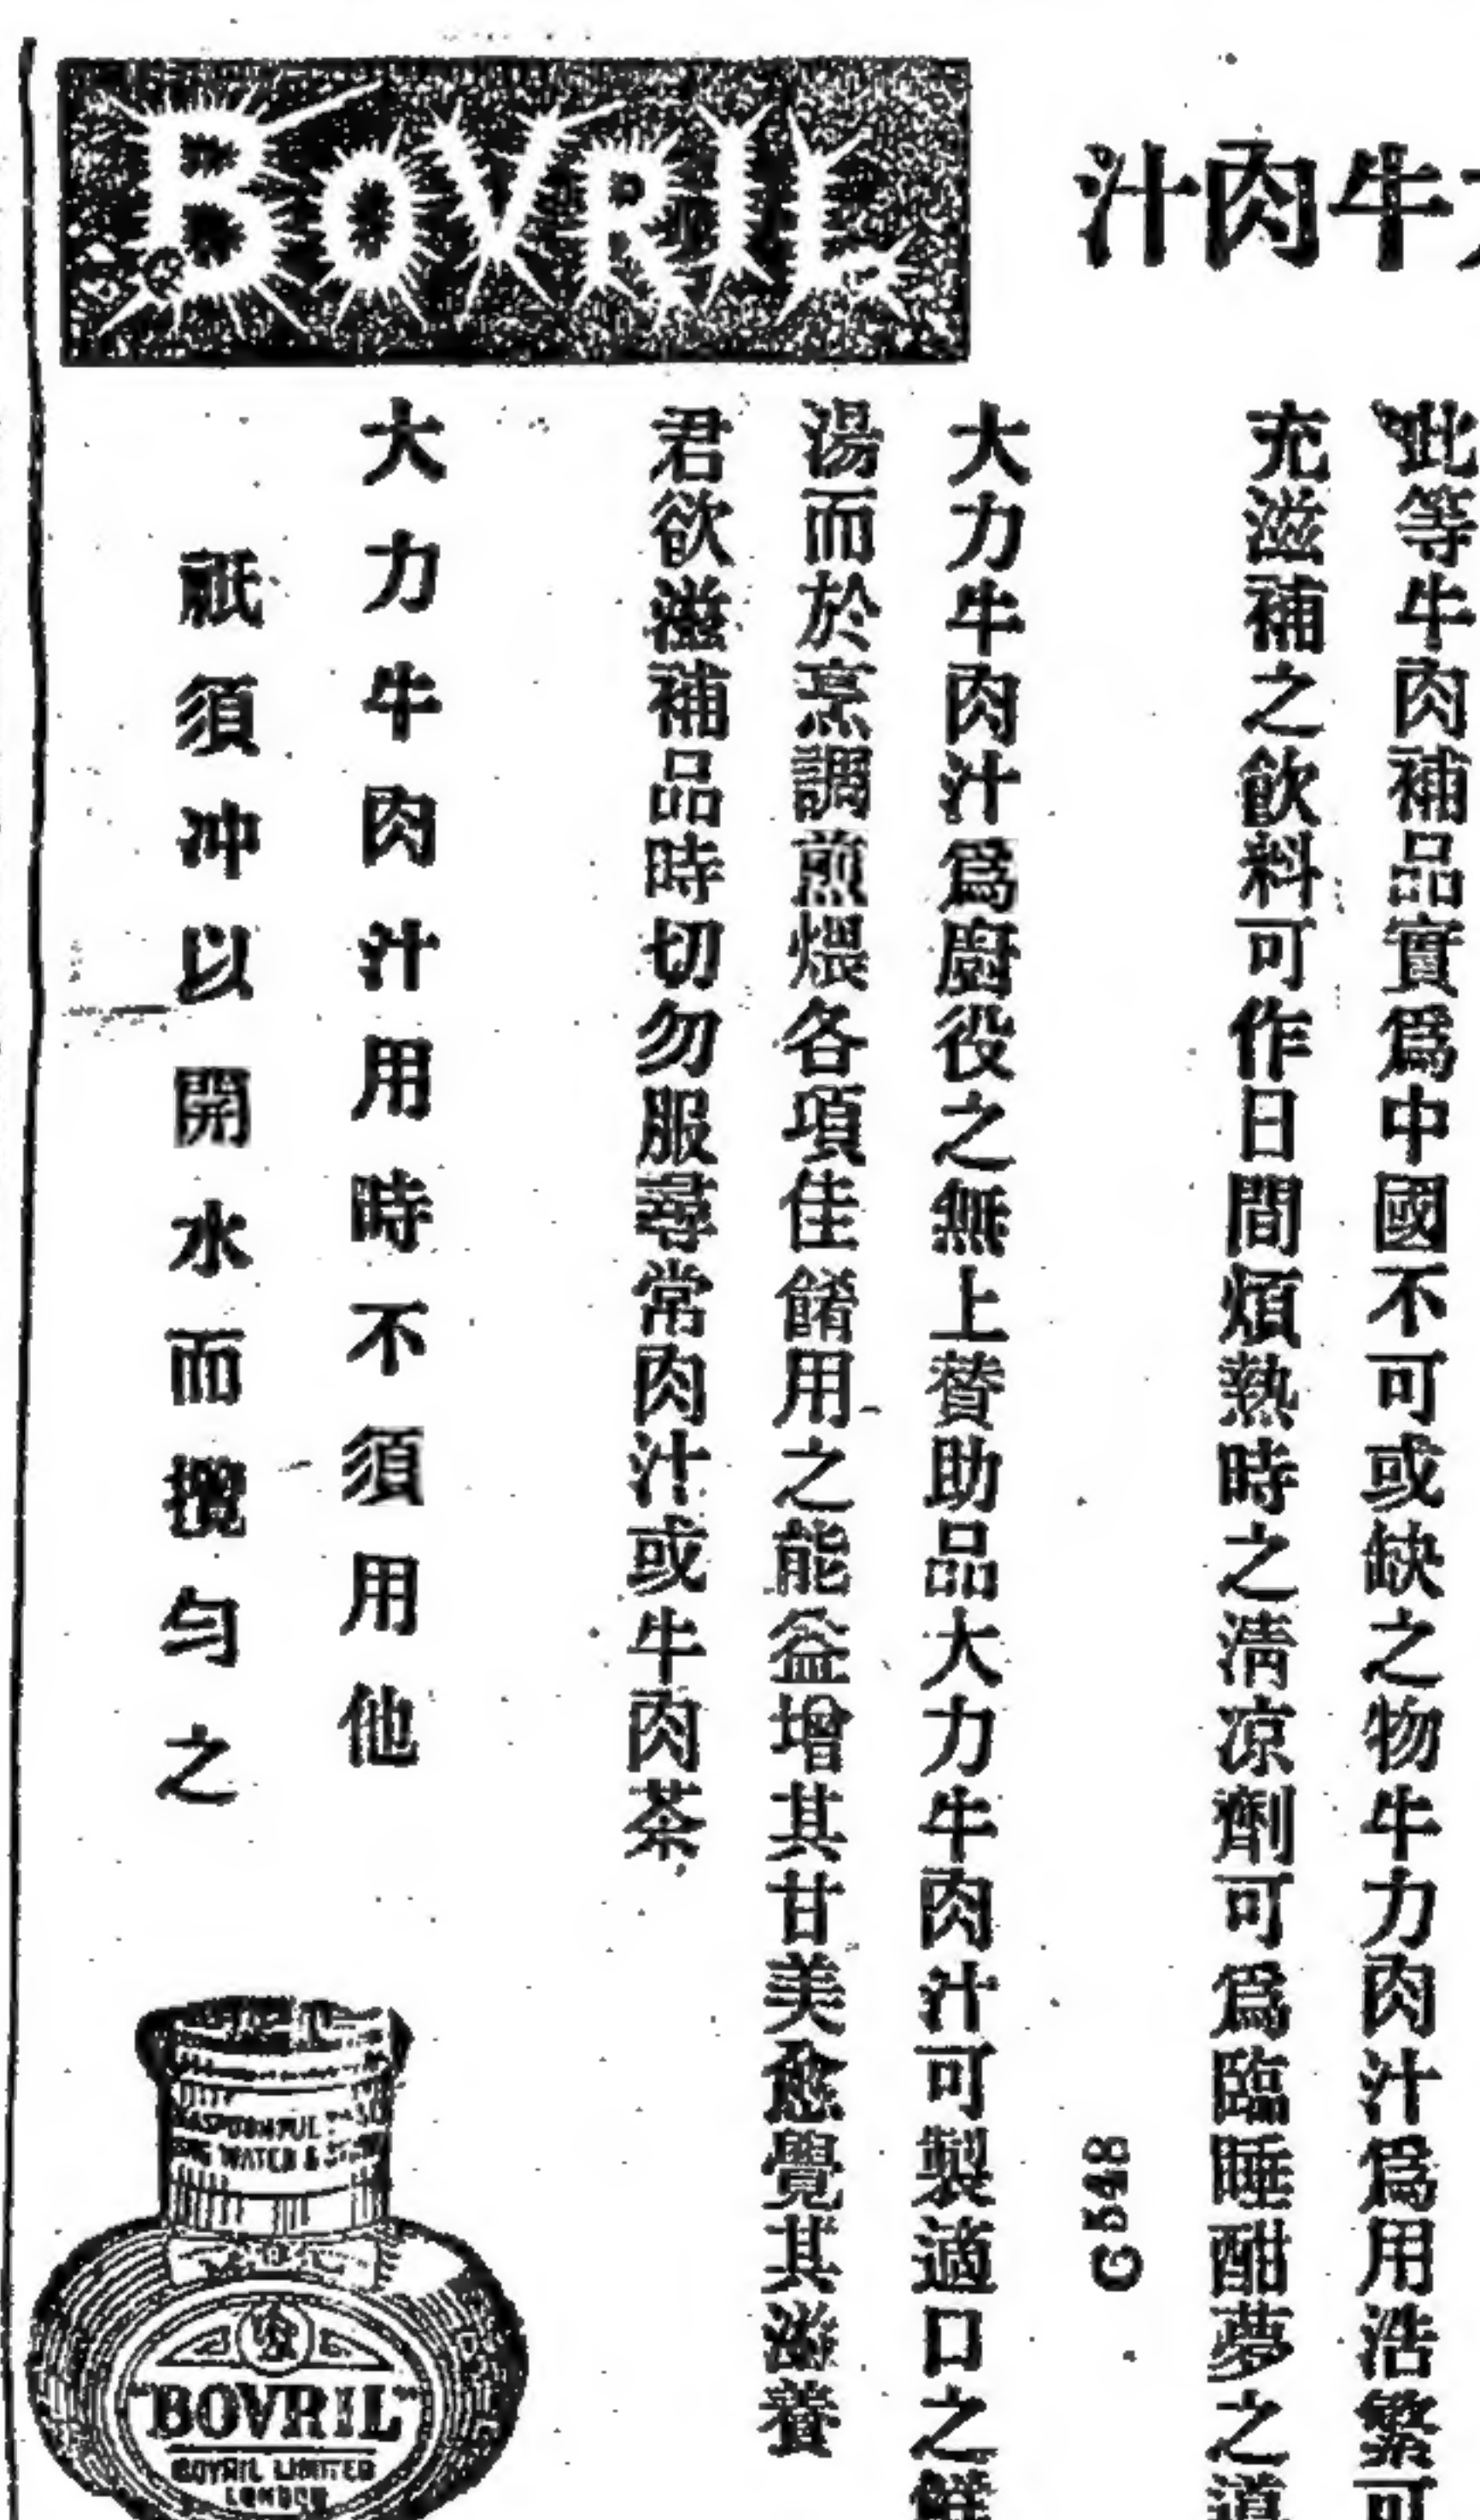 BOVRIL
汁肉牛
此等牛肉補品實爲中國不可或缺之物牛力肉汁爲用浩繁可
充滋補之飲料可作日間煩熱時之清凉劑可爲臨睡酣夢之導
G 548
大力牛肉汁爲廚役之無上賛助品大力牛肉汁可製適口之鮮
湯而於烹調煎煨各項佳餚用之能益增其甘美愈覺其滋養
君欲滋補品時切勿服尋常肉汁或牛肉茶
大力牛肉汁用時不須用他
祇須冲以開水而攪匀之
WATER &
"BOVRIL"
BOVRIL LIMITED
LONDON